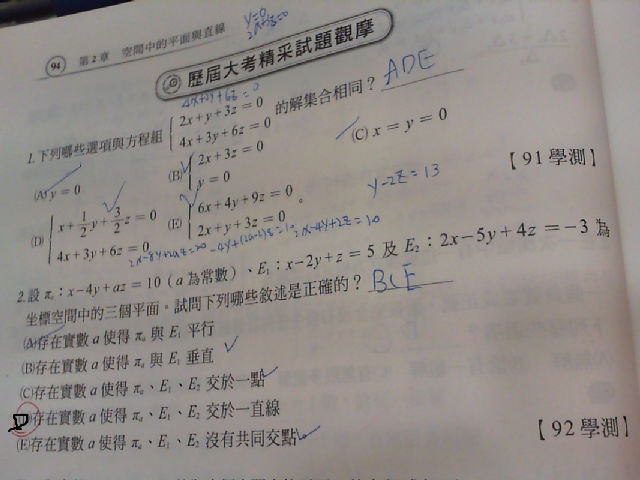 94 第2章 空間中的平面與直線
y=0
歷屆大考精采試題觀摩
1.下列哪些選項與方程組 { 2x+y+3z=0 4x+3y+6z=0 的解集合相同？ ADE
(A) y=0 (B) { 2x+3z=0 y=0 (C) x=y=0
(D) { x+1/2y+3/2z=0 4x+3y+6z=0 (E) { 6x+4y+9z=0 2x+y+3z=0 。
【91學測】
y-2z=13
2.設 πa：x-4y+az=10（a為常數）、E1：x-2y+z=5 及 E2：2x-5y+4z=-3 為
坐標空間中的三個平面。試問下列哪些敘述是正確的？ BCE
(A)存在實數a使得 πa 與 E1 平行
(B)存在實數a使得 πa 與 E1 垂直
(C)存在實數a使得 πa、E1、E2 交於一點
D 存在實數a使得 πa、E1、E2 交於一直線
(E)存在實數a使得 πa、E1、E2 沒有共同交點
【92學測】